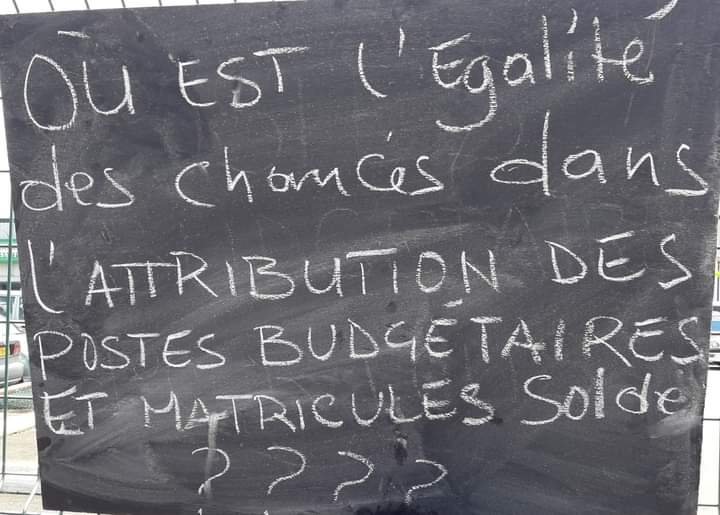 OÙ EST l'Egalité
des chances dans
l'ATTRIBUTION DES
POSTES BUDGÉTAIRES
ET MATRICULES Solde
????